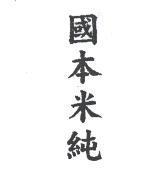 國本米純